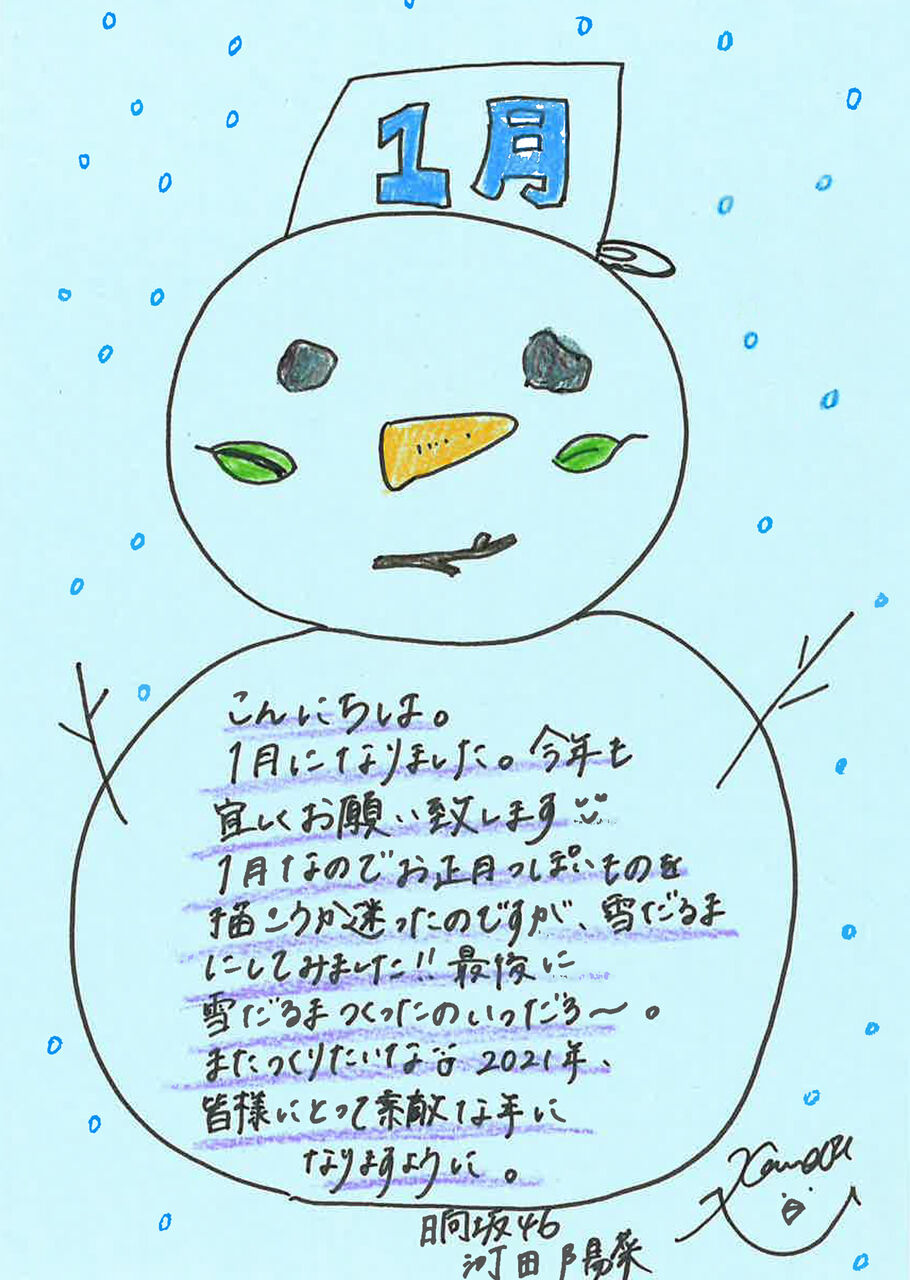 1月
こんにちは。
1月になりました。今年も
宜しくお願い致します
1月なのでお正月っぽいものを
描こうか迷ったのですが、雪だるま
にしてみました!! 最後に
雪だるまつくったのいつだろ〜。
またつくりたいな 2021年、
皆様にとって素敵な年に
なりますように。
日向坂46
河田陽菜